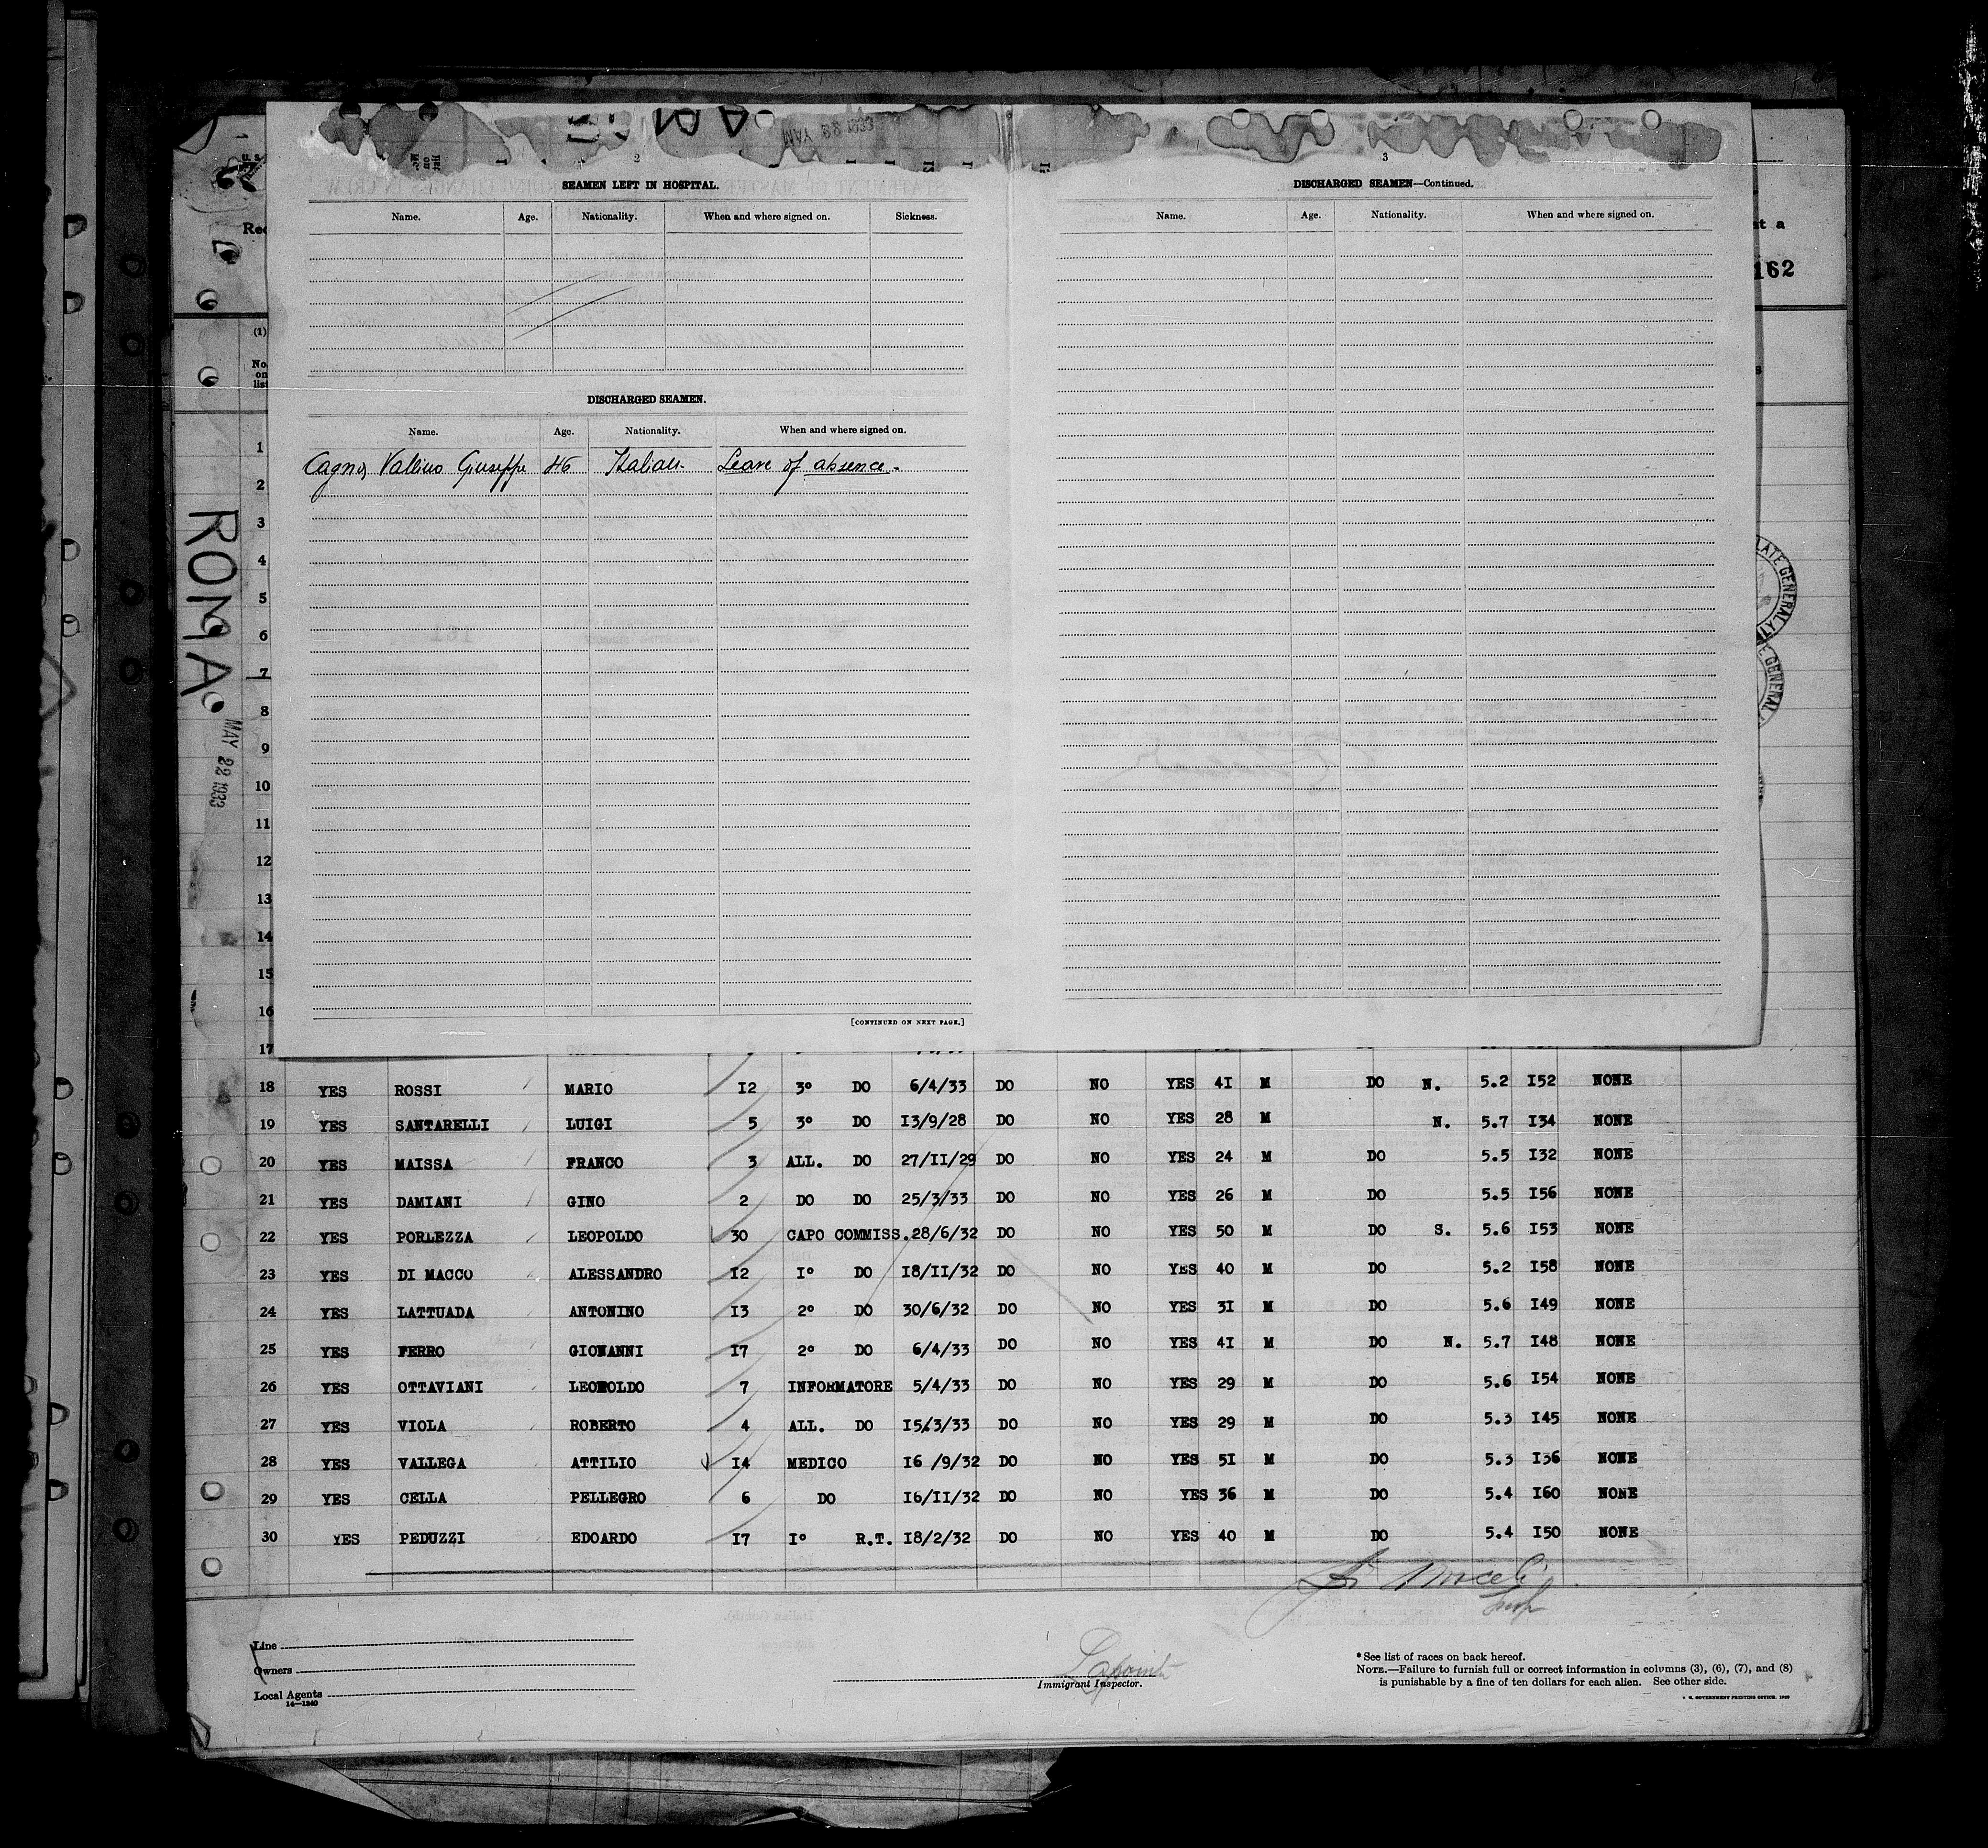 2
SEAMEN LEFT IN HOSPITAL.
Name. Age. Nationality. When and where signed on. Sickness.
DISCHARGED SEAMEN.
Name. Age. Nationality. When and where signed on.
Giuseppe 46 Italian. Leave of absence.
[CONTINUED ON NEXT PAGE.]
3
DISCHARGED SEAMEN—Continued.
Name. Age. Nationality. When and where signed on.
162
(1)
No.
on
list
ROMA
MAY 22 1933
1
2
3
4
5
6
7
8
9
10
11
12
13
14
15
16
17
18 YES ROSSI MARIO I2 3º DO 6/4/33 DO NO YES 4I M DO N. 5.2 I52 NONE
19 YES SANTARELLI LUIGI 5 3º DO I3/9/28 DO NO YES 28 M N. 5.7 I34 NONE
20 YES MAISSA FRANCO 3 ALL. DO 27/II/29 DO NO YES 24 M DO 5.5 I32 NONE
21 YES DAMIANI GINO 2 DO DO 25/3/33 DO NO YES 26 M DO 5.5 I56 NONE
22 YES PORLEZZA LEOPOLDO 30 CAPO COMMISS. 28/6/32 DO NO YES 50 M DO S. 5.6 I53 NONE
23 YES DI MACCO ALESSANDRO I2 Iº DO I8/II/32 DO NO YES 40 M DO 5.2 I58 NONE
24 YES LATTUADA ANTONINO I3 2º DO 30/6/32 DO NO YES 3I M DO 5.6 I49 NONE
25 YES FERRO GIOVANNI I7 2º DO 6/4/33 DO NO YES 4I M DO N. 5.7 I48 NONE
26 YES OTTAVIANI LEOPOLDO 7 INFORMATORE 5/4/33 DO NO YES 29 M DO 5.6 I54 NONE
27 YES VIOLA ROBERTO 4 ALL. DO I5/3/33 DO NO YES 29 M DO 5.3 I45 NONE
28 YES VALLEGA ATTILIO I4 MEDICO I6 /9/32 DO NO YES 5I M DO 5.3 I36 NONE
29 YES CELLA PELLEGRO 6 DO I6/II/32 DO NO YES 36 M DO 5.4 I60 NONE
30 YES PEDUZZI EDOARDO I7 Iº R.T. I8/2/32 DO NO YES 40 M DO 5.4 I50 NONE
Line
Owners
Local Agents
14—1240
Immigrant Inspector.
* See list of races on back hereof.
NOTE.—Failure to furnish full or correct information in columns (3), (6), (7), and (8)
is punishable by a fine of ten dollars for each alien. See other side.